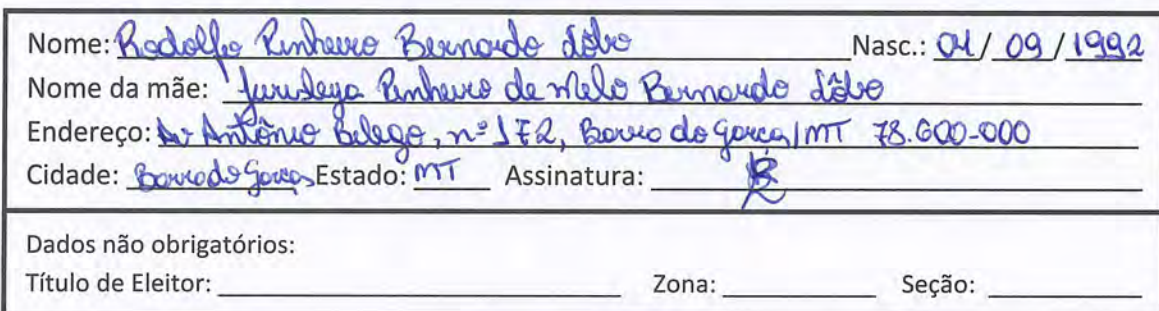 Nome: Rodolfo Pinheiro Bernardo Lôbo Nasc.: 01/ 09 /1992
Nome da mãe: Pinheiro de Melo Bernardo Lôbo
Endereço: Av Antônio nº 172, Barra do Garças/MT 78.600-000
Cidade: Barra do Garças Estado: MT Assinatura:
Dados não obrigatórios:
Título de Eleitor: Zona: Seção: